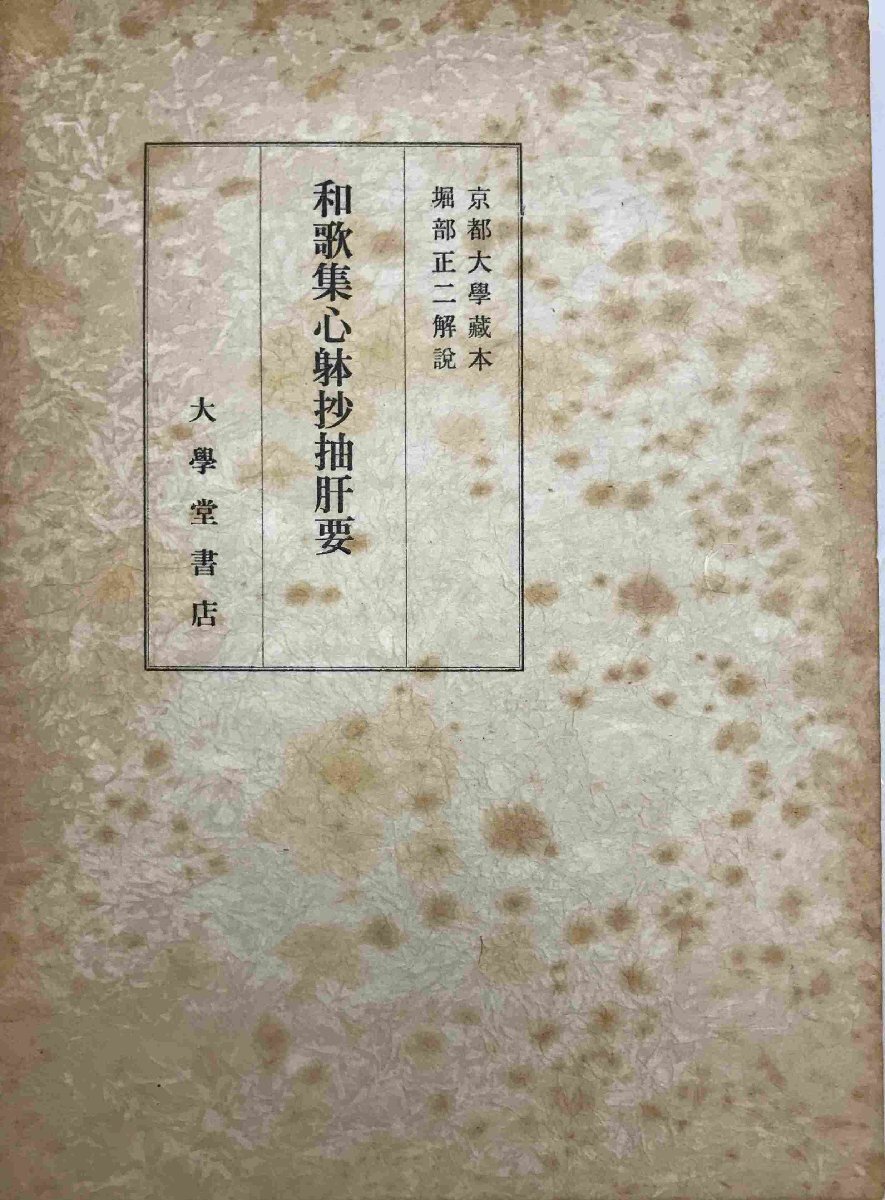 京都大學藏本
堀部正二解說
和歌集心躰抄抽肝要
大學堂書店